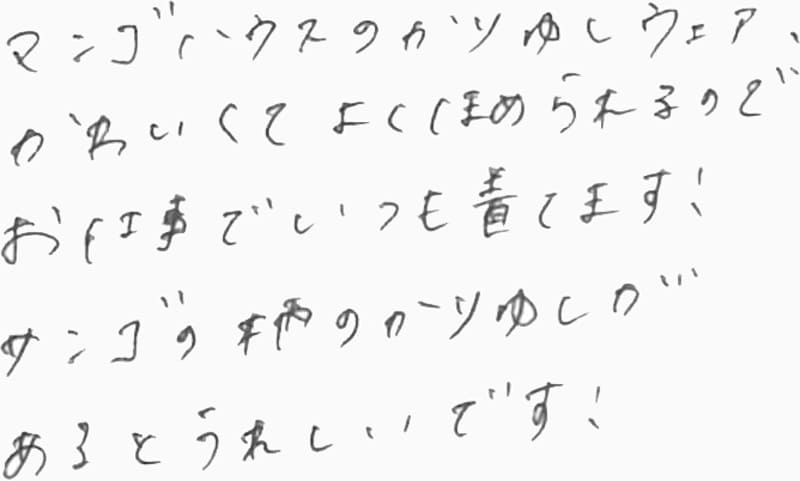 マンゴハウスのかりゆしウェア、
かわいくてよくほめられるので
お仕事でいつも着てます!
サンゴの柄のかーりゆしが
あるとうれしいです!